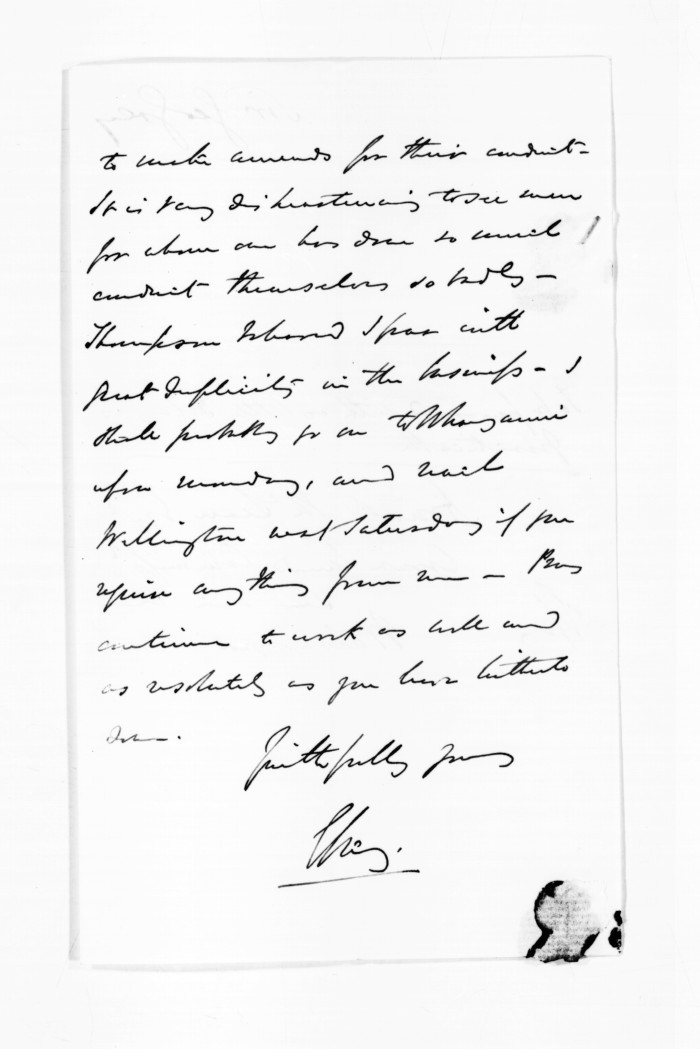 to make amends for their conduct -
It is very disheartening to see men
for whom one has done so much
conduct themselves so badly -
Thompson behaved I fear with
great duplicity in the business - I
shall probably go on to Whanganui
upon monday, and
Wellington next Saturday if you
require anything from me - Pray
continue to work as well and
as resolutely as you have hitherto
done.
Faithfully yours
G Grey.